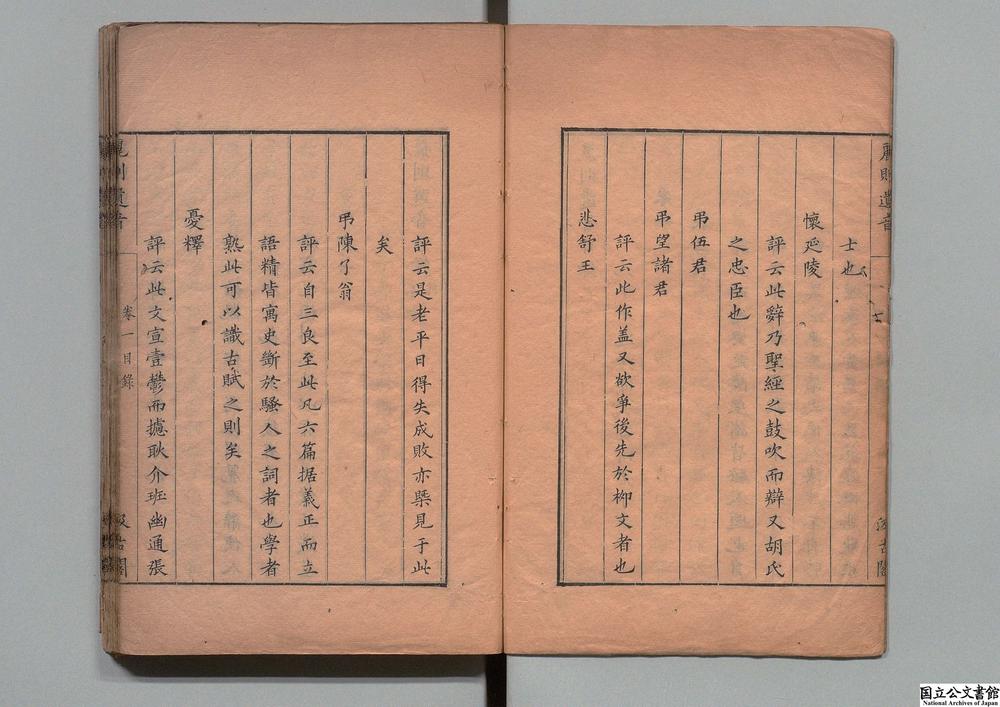 士也
懷延陵
評云此辭乃聖經之鼓吹而辯又胡氏
之忠臣也
弔伍君
弔望諸君
評云此作盖又欲爭後先於柳文者也
悲舒王
評云是老平日得失成敗亦槩見于此
矣
弔陳了翁
評云自三良至此凡六篇据義正而立
語精皆寓史斷於騷人之詞者也學者
熟此可以識古賦之則矣
憂釋
評云此文宣壹鬱而攄耿介班幽通張
麗則遺音
卷一目錄
汲古閣
国立公文書館
National Archives of Japan